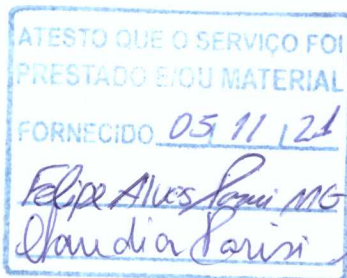 ATESTO QUE O SERVIÇO FOI
PRESTADO E/OU MATERIAL
FORNECIDO 05/11/21
Felipe Alves MG
Claudia Parisi